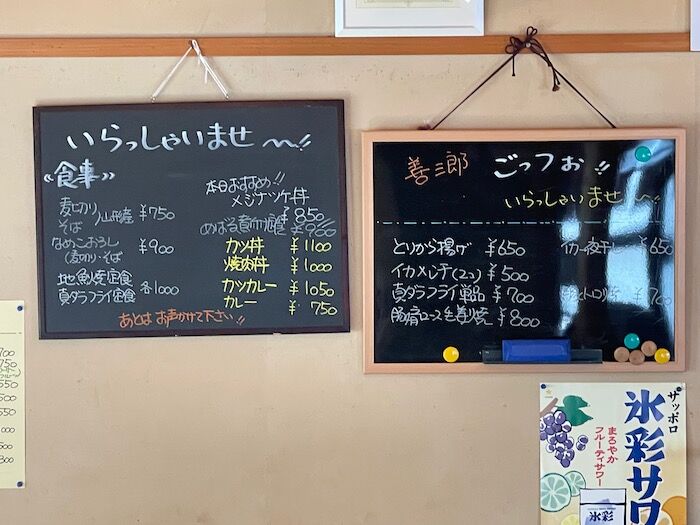 いらっしゃいませ 〜〜!!
《食事》
麦切り
そば
¥750
なめこおろし
(麦切り・そば
¥900
地魚焼定食
真ダラフライ定食
各1000
本日おすすめ!!
メジナツケ丼
¥850
カツ丼 ¥1100
焼肉丼 ¥1000
カツカレー ¥1050
カレー ¥750
あとは お声かけて下さい!!
善三郎 ごっつぉ!!
いらっしゃいませ 〜!!
とりから揚げ ¥650
イカメンチ(2コ) ¥500
真ダラフライ単品 ¥700
豚肩ロース生姜焼 ¥800
イカ一夜干し ¥650
¥700
700
750
550
500
550
000
500
800
サッポロ
氷彩サワ
まろやか
フルーティサワー
氷彩